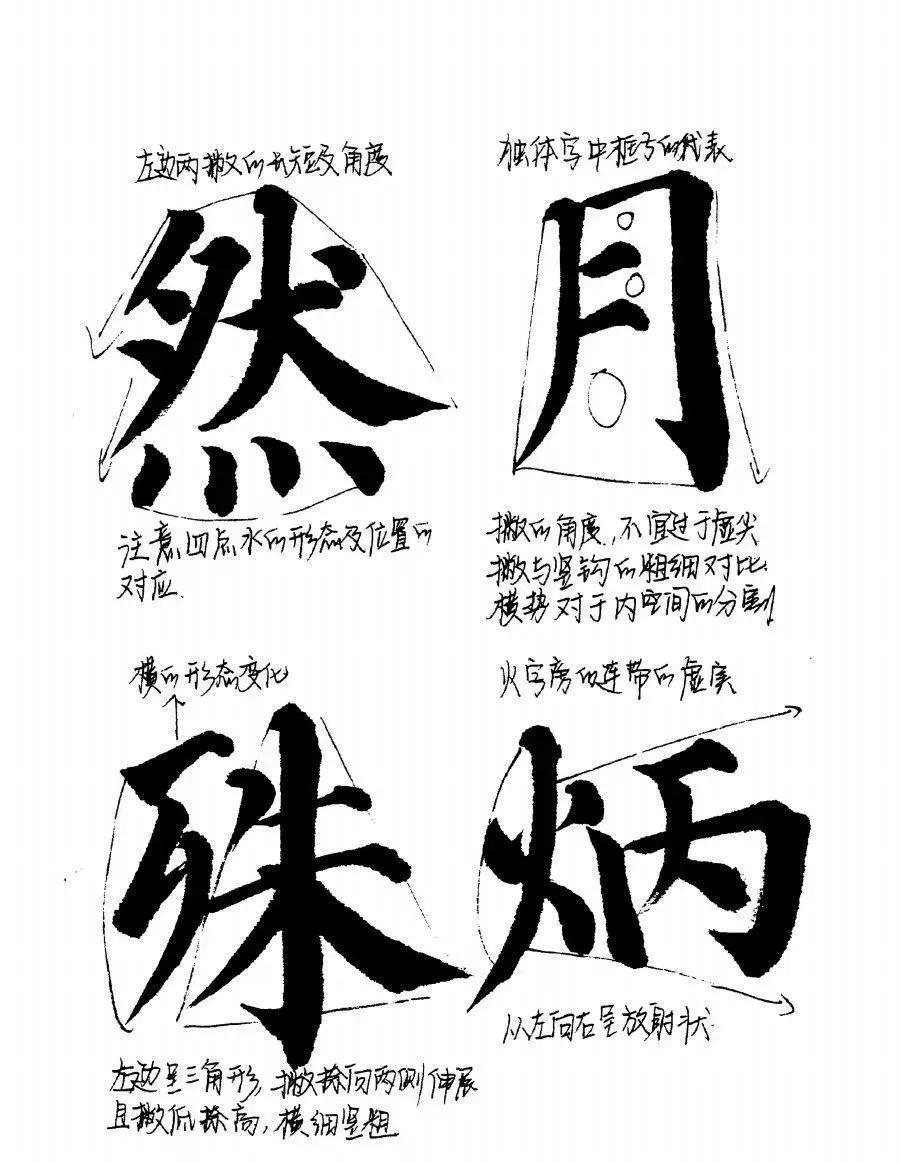 左边两撇的长短及角度
然
注意四点水的形态及位置的
对应.
独体字中框子的代表
月
撇的角度,不宜过于虚尖
撇与竖钩的粗细对比.
横势对于内空间的分割
横的形态变化
殊
左边呈三角形,撇捺向两侧伸展
且撇低捺高,横细竖粗
火字旁的连带的虚实
炳
从左向右呈放射状